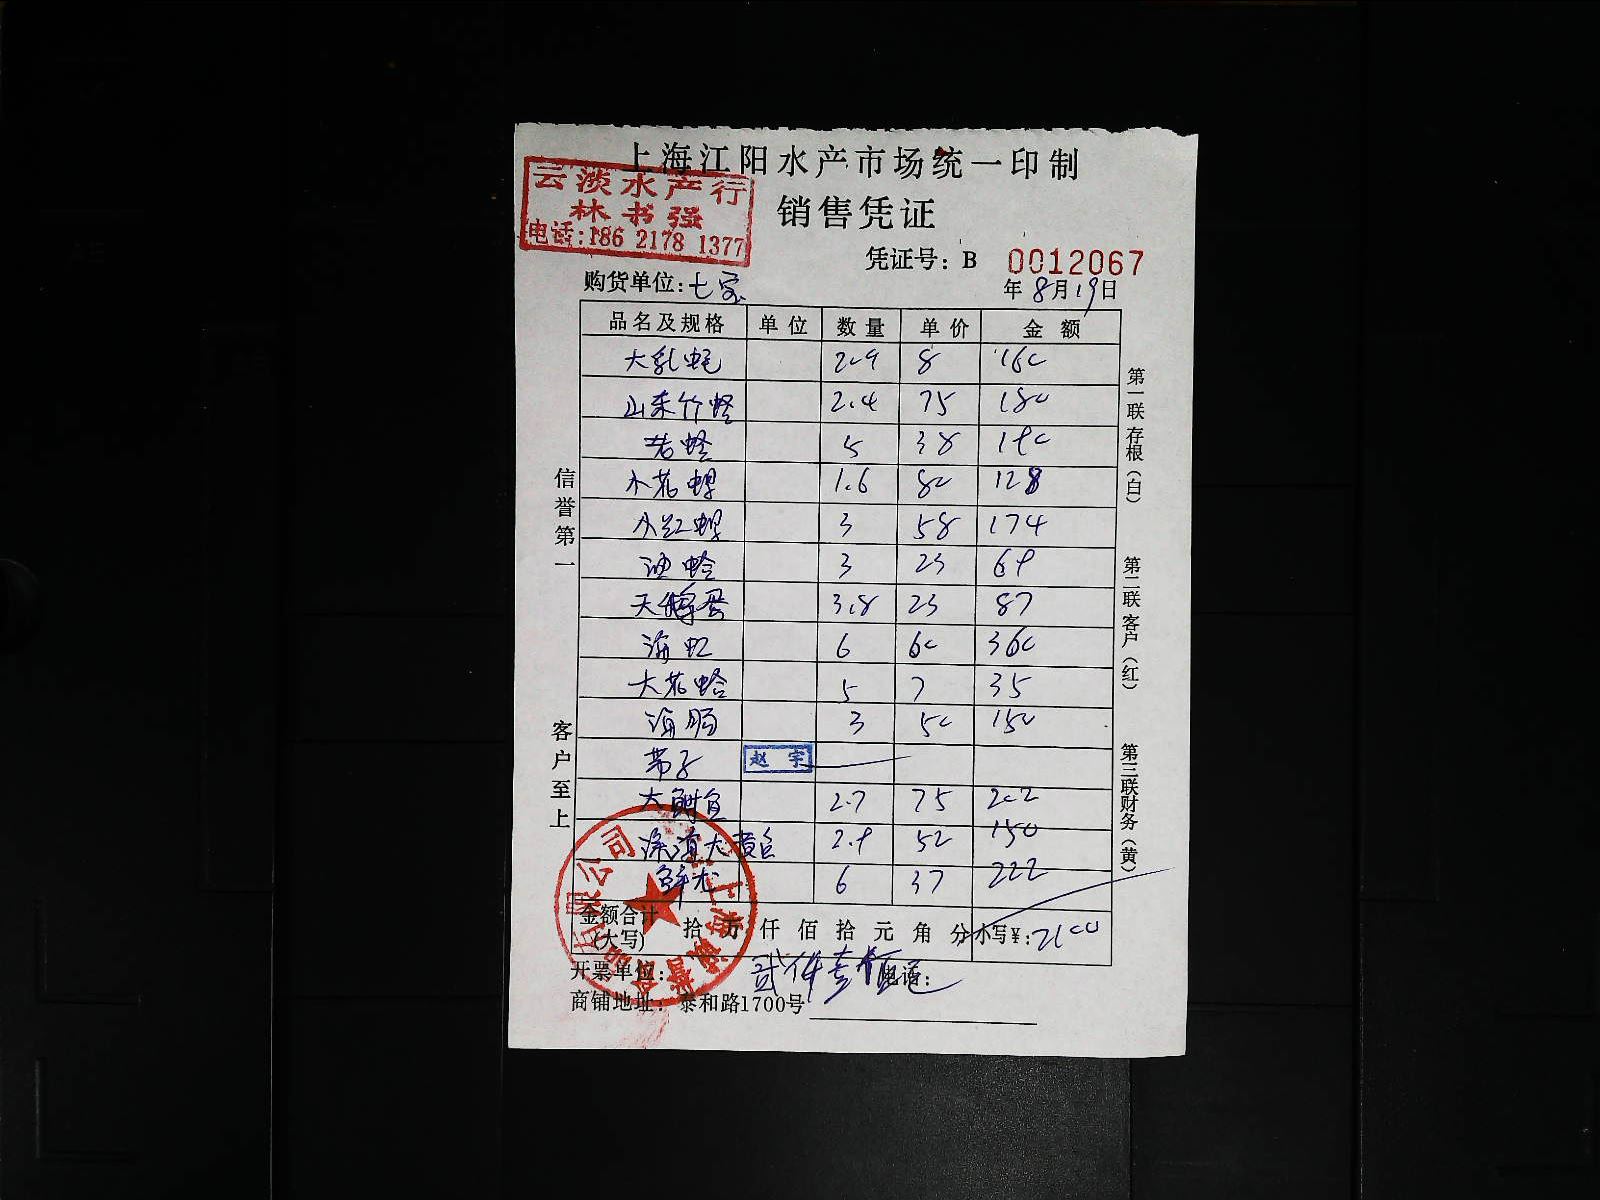 上海江阳水产市场统一印制
云淡水产行
林书强
电话:186 2178 1377
销售凭证
凭证号: B 0012067
购货单位:七宝
年8月19日
品名及规格 单位 数量 单价 金额
大乳蚝 209 8 160
山东竹蛏 2.4 75 180
蛏 5 38 190
小花螺 1.6 80 128
小红螺 3 58 174
油蛤 3 23 69
天鹅蛋 3.8 23 87
海虹 6 60 360
大花蛤 5 7 35
海肠 3 50 150
带子 赵宇
大鲋鱼 2.7 75 202
深海大黄鱼 2.9 52 150
6 37 222
金额合计(大写) 拾 万 仟 佰 拾 元 角 分 小写¥:2100
开票单位: 贰仟壹佰 电话:
商铺地址: 泰和路1700号
信誉第一
客户至上
第一联存根(白)
第二联客户(红)
第三联财务(黄)